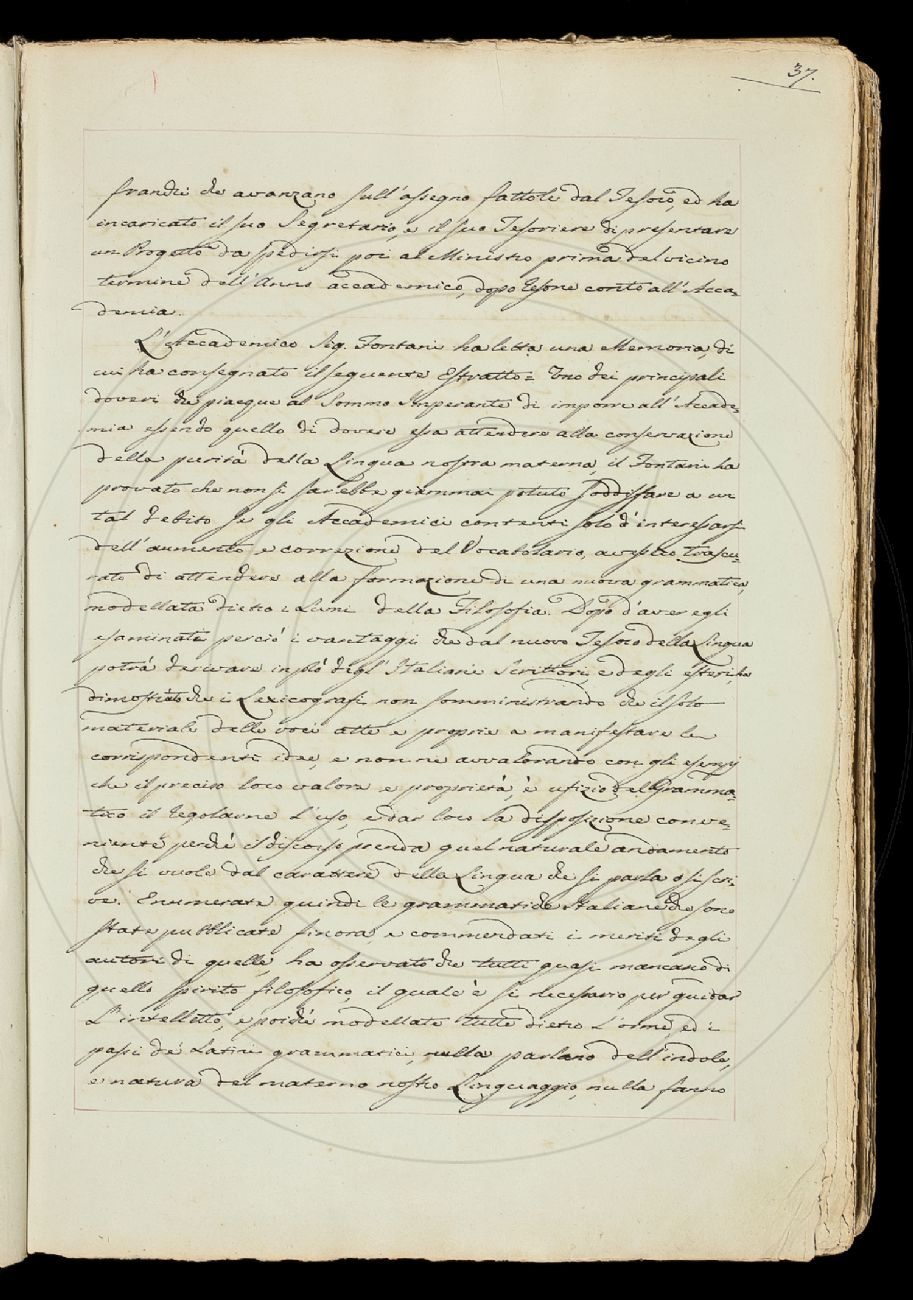 37.
franchi che avanzano sull'assegno fattole dal Tesoro, ed ha
incaricato il suo Segretario, e il suo Tesoriere di presentare
un Progetto da spedirsi poi al Ministro prima del vicino
termine dell'Anno accademico, dopo resone conto all'Acca=
demia.
L'Accademico Sig. Fontani ha letta una Memoria, di
cui ha consegnato il seguente Estratto = Uno dei principali
doveri che piacque al Sommo Imperante di imporre all'Accade=
mia essendo quello di dovere essa attendere alla conservazione
della purità della Lingua nostra materna, il Fontani ha
provato che non si sarebbe giammai potuto soddisfare a un
tal debito se gli Accademici contenti solo d'interessarsi
dell'aumento e correzione del Vocabolario, avessero trascu=
rato di attendere alla formazione di una nuova grammatica,
modellata dietro i Lumi della Filosofia. Dopo d'aver egli
esaminati perciò i vantaggi che dal nuovo Tesoro della Lingua
potrà derivare in prò degl'Italiani Scrittori, e degli esteri, ha
dimostrato che i Lexicografi non somministrando che il solo
materiale delle voci atte e proprie a manifestare le
corrispondenti idee, e non ne avvalorando con gli esempj
che il preciso loro valore e proprietà, è ufizio del Gramma=
tico il regolarne l'uso, e dar loro la disposizione conve=
niente perchè il discorso prenda quel naturale andamento
che si vuole dal carattere della Lingua che si parla o si scri=
ve. Enumerate quindi le grammatiche italiane che sono
state pubblicate finora, e commendati i meriti degli
autori di quelle, ha osservato che tutti quasi mancano di
quello spirito filosofico, il quale è sì necesario per guidar
l'intelletto, e poichè modellate tutte dietro l'orme, ed i
passi de' Latini grammatici, nulla parlano dell'indole,
e natura del materno nostro Linguaggio, nulla fanno